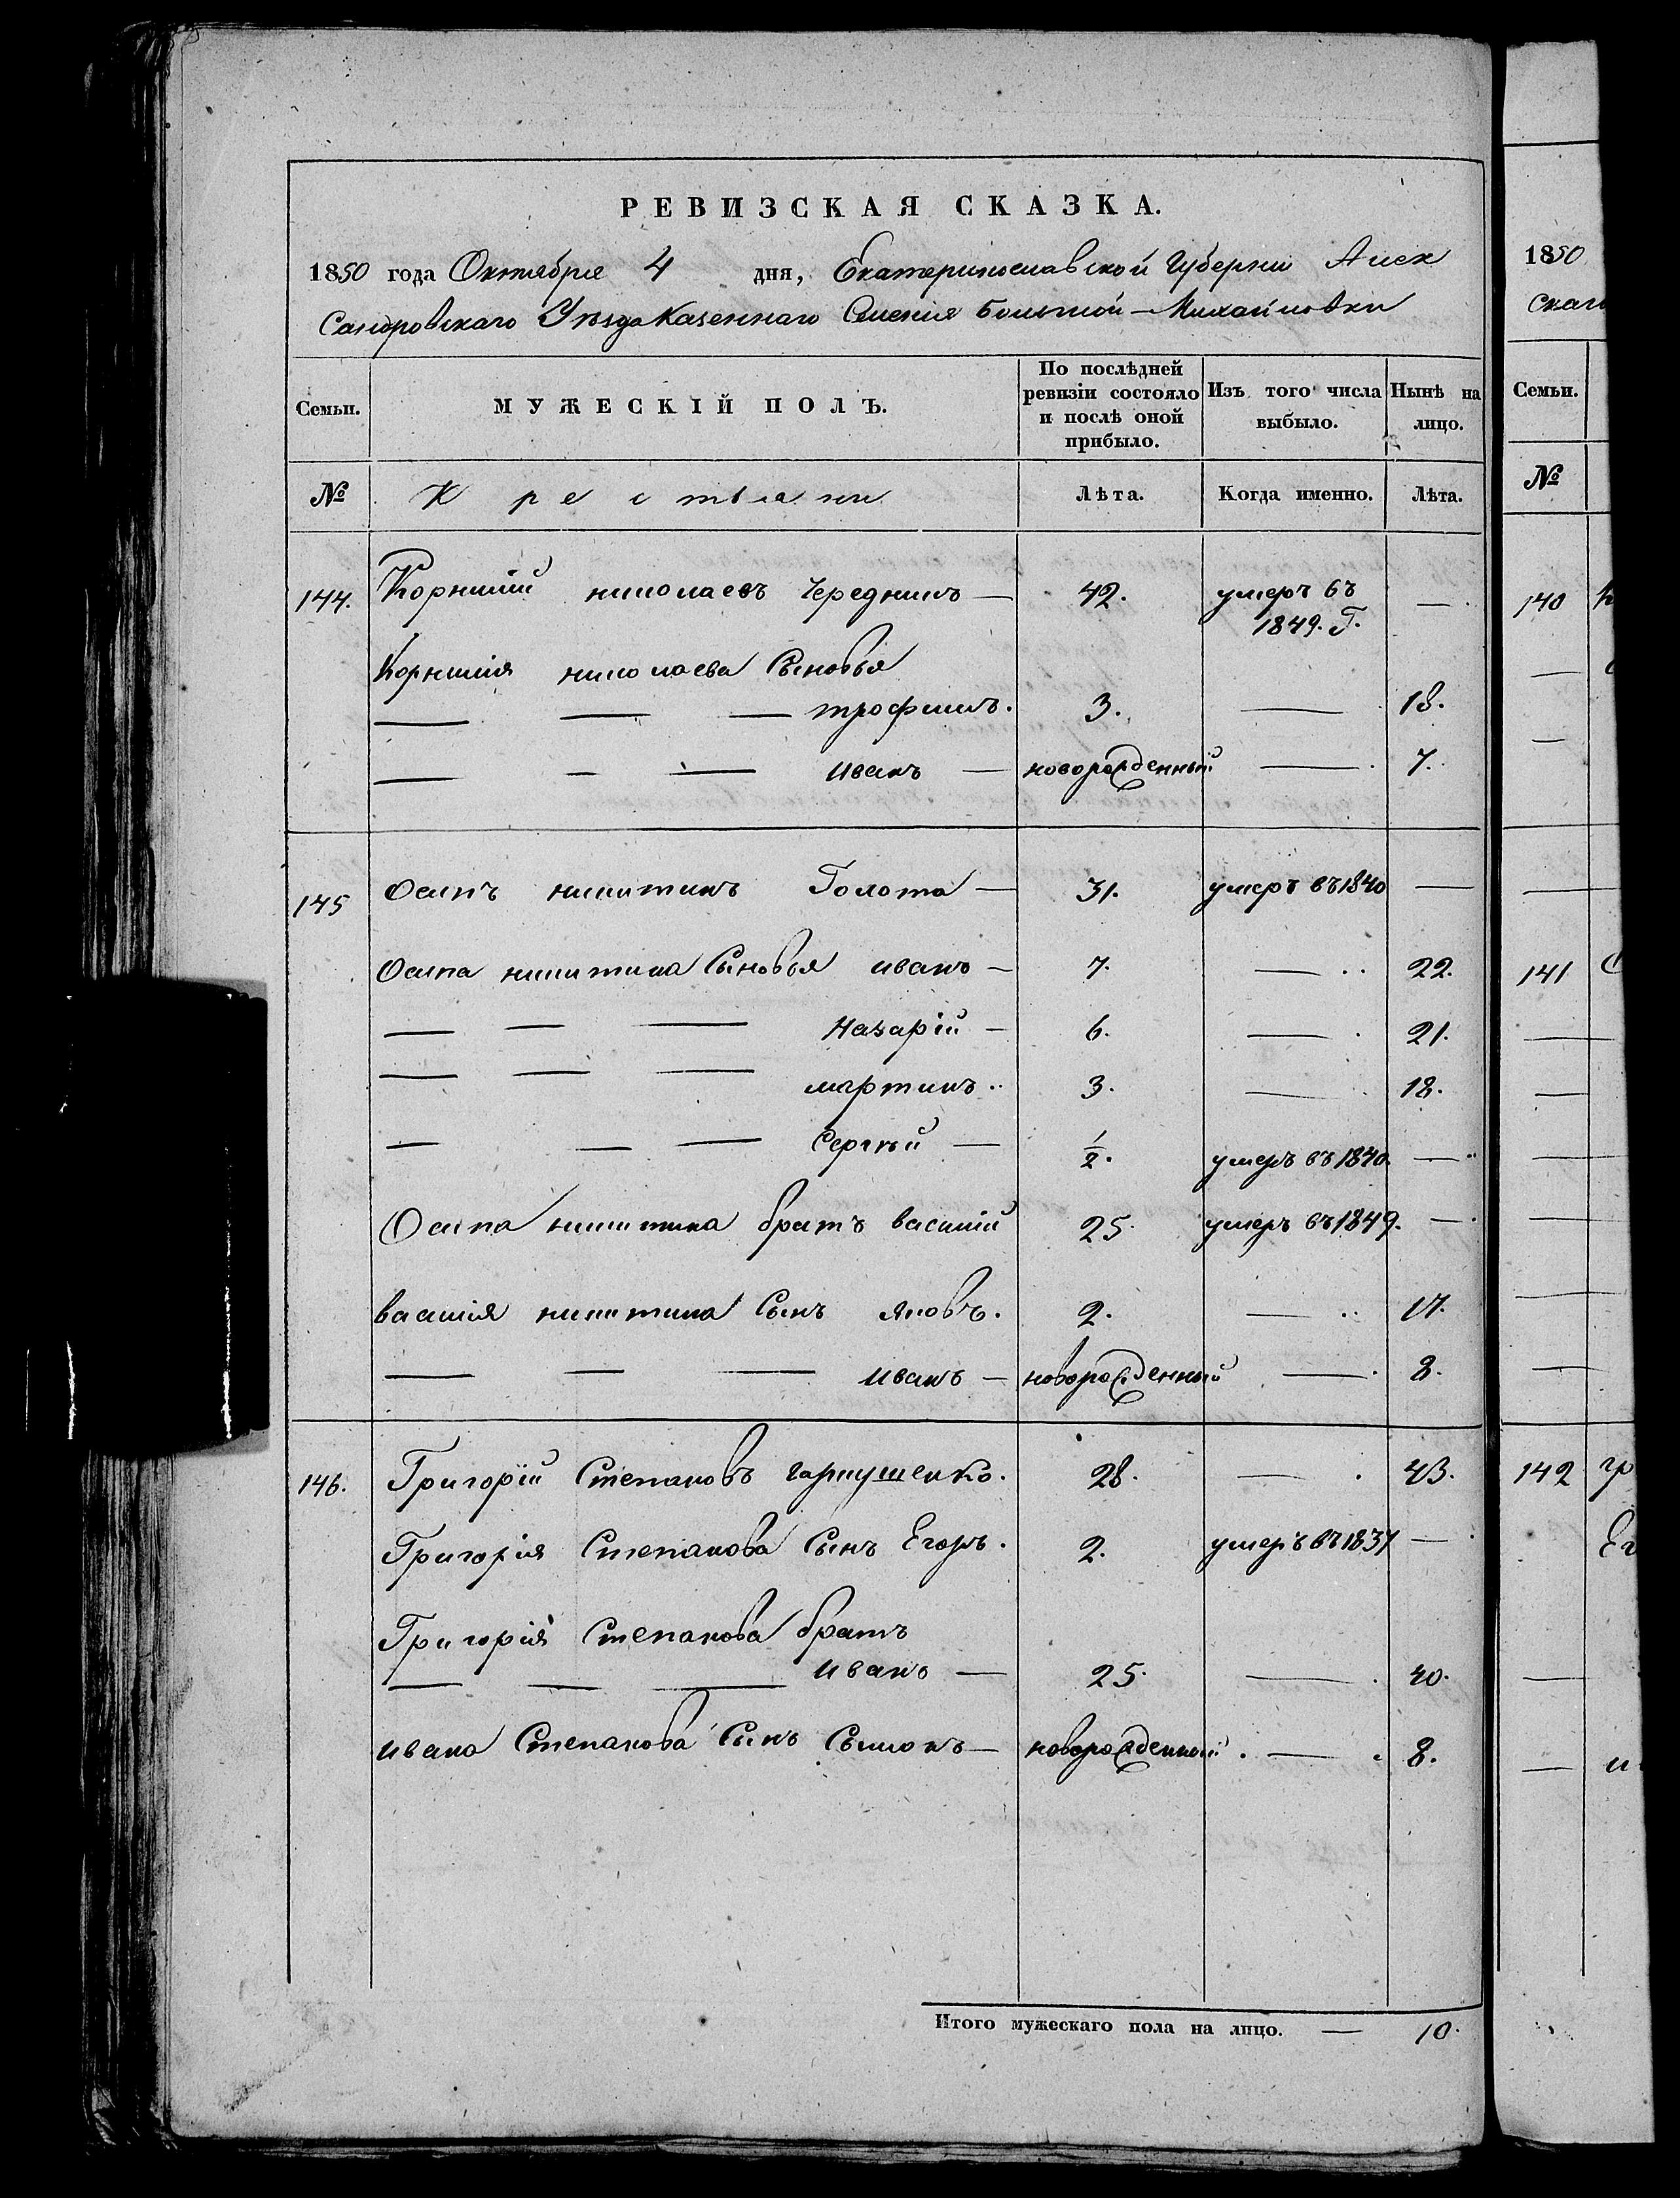 РЕВИЗСКАЯ СКАЗКА.
1850 года Октября 4 дня, Екатеринославской Губернии Алек
Сандровскаго Уѣзда Казеннаго Селения Большой-Михайловки
Семьи. МУЖЕСКІЙ ПОЛЪ. По послѣдней ревизіи состояло и послѣ оной прибыло. Изъ того числа выбыло. Нынѣ на лицо.
№ Крестьяни Лѣта. Когда именно. Лѣта.
144. Корнилій николаевъ Чередникъ — 42. умеръ въ 1849. Г. —
Корнилія николаева Сыновья
— — — трофимъ. 3. — 18.
— — — иванъ — новорожденный — 7.
145 Осипъ никитинъ Голота — 31. умеръ въ 1840 —
Осипа никитина Сыновья иванъ — 7. — 22.
— — — Назарій — 6. — 21.
— — — мартинъ.. 3. — 18.
— — — Сергѣй — 1/2. умеръ въ 1840. —
Осипа никитина братъ василій 25. умеръ въ 1849. —
василія никитина Сынъ яковъ. 2. — 17.
— — — иванъ — новорожденный — 8.
146. Григорій Степановъ гаркушенко. 28. — 43.
Григорія Степанова Сынъ Егоръ. 2. умеръ въ 1837 —
Григорія Степанова братъ
— — — иванъ — 25. — 40.
ивана Степанова Сынъ Сымонъ — новорожденный. — 8.
Итого мужескаго пола на лицо. — 10.
1850
Скаго
Семьи.
№
140
141
142 гр
Ег